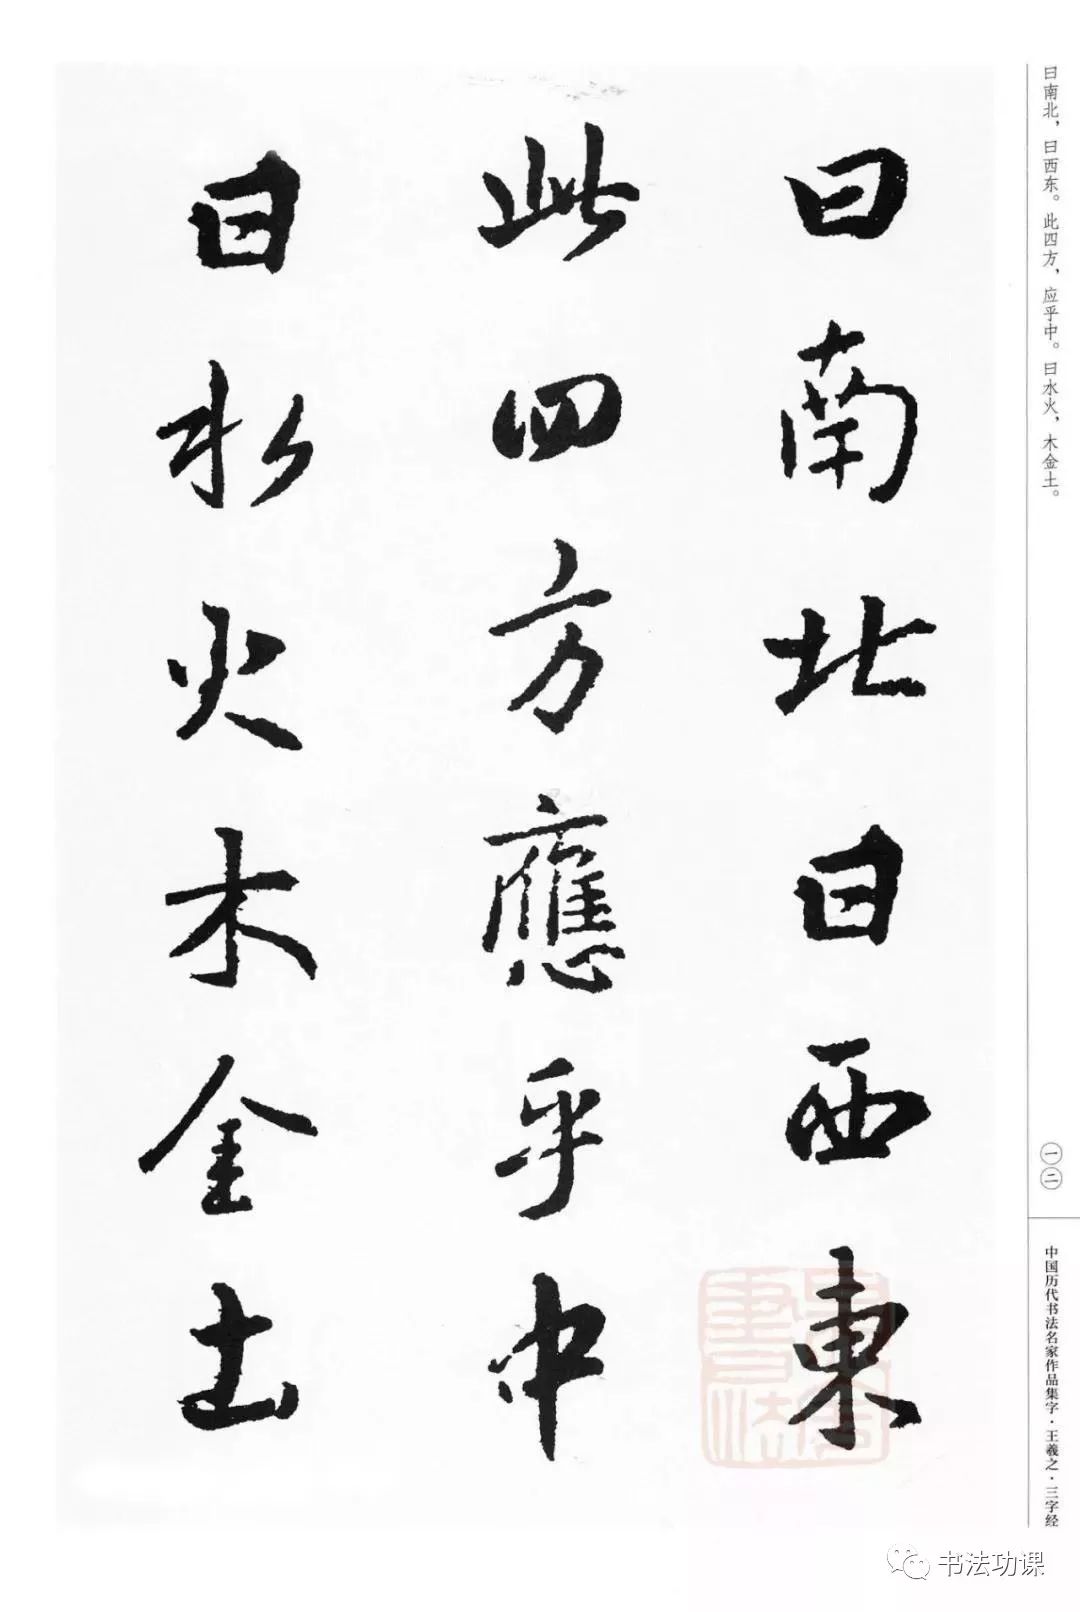 曰南北，曰西东。此四方，应乎中。曰水火，木金土。
曰南北曰西東
此四方應乎中
曰水火木金土
一二
中国历代书法名家作品集字·王羲之·三字经
书法功课